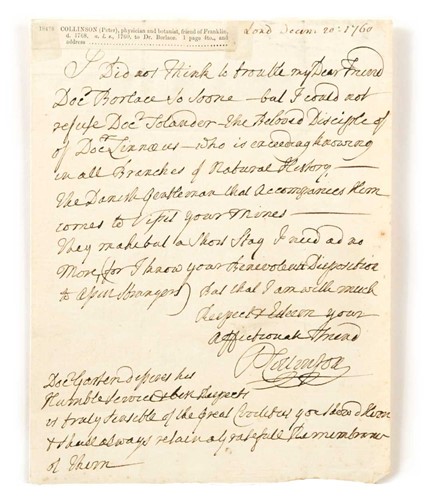 COLLINSON (Peter), physician and botanist, friend of Franklin,
d. 1768, a. l. s., 1760, to Dr. Borlase. 1 page 4to., and
address
Lond Decem: 20: 1760
I Did not think to trouble my Dear Friend
Docr. Borlace so Soone – but I could not
refuse Docr Solander – the Beloved Disciple of
of Docr Linnæus – who is exceeding knowing
in all Branches of Natural History –
the Danish Gentleman that Accompanies Him
comes to Visit your Mines –
They make but a Short Stay I need ad no
More (for I know your Benevolent Disposition
to assist strangers) But that I am with much
Respect & Esteem your
Affectionate Friend
P Collinson
Docr Garden desires his
Humble Service & best Respects
is truly sensible of the Great Civilities you Shewd Him
& shall always retain a gratefull
of them